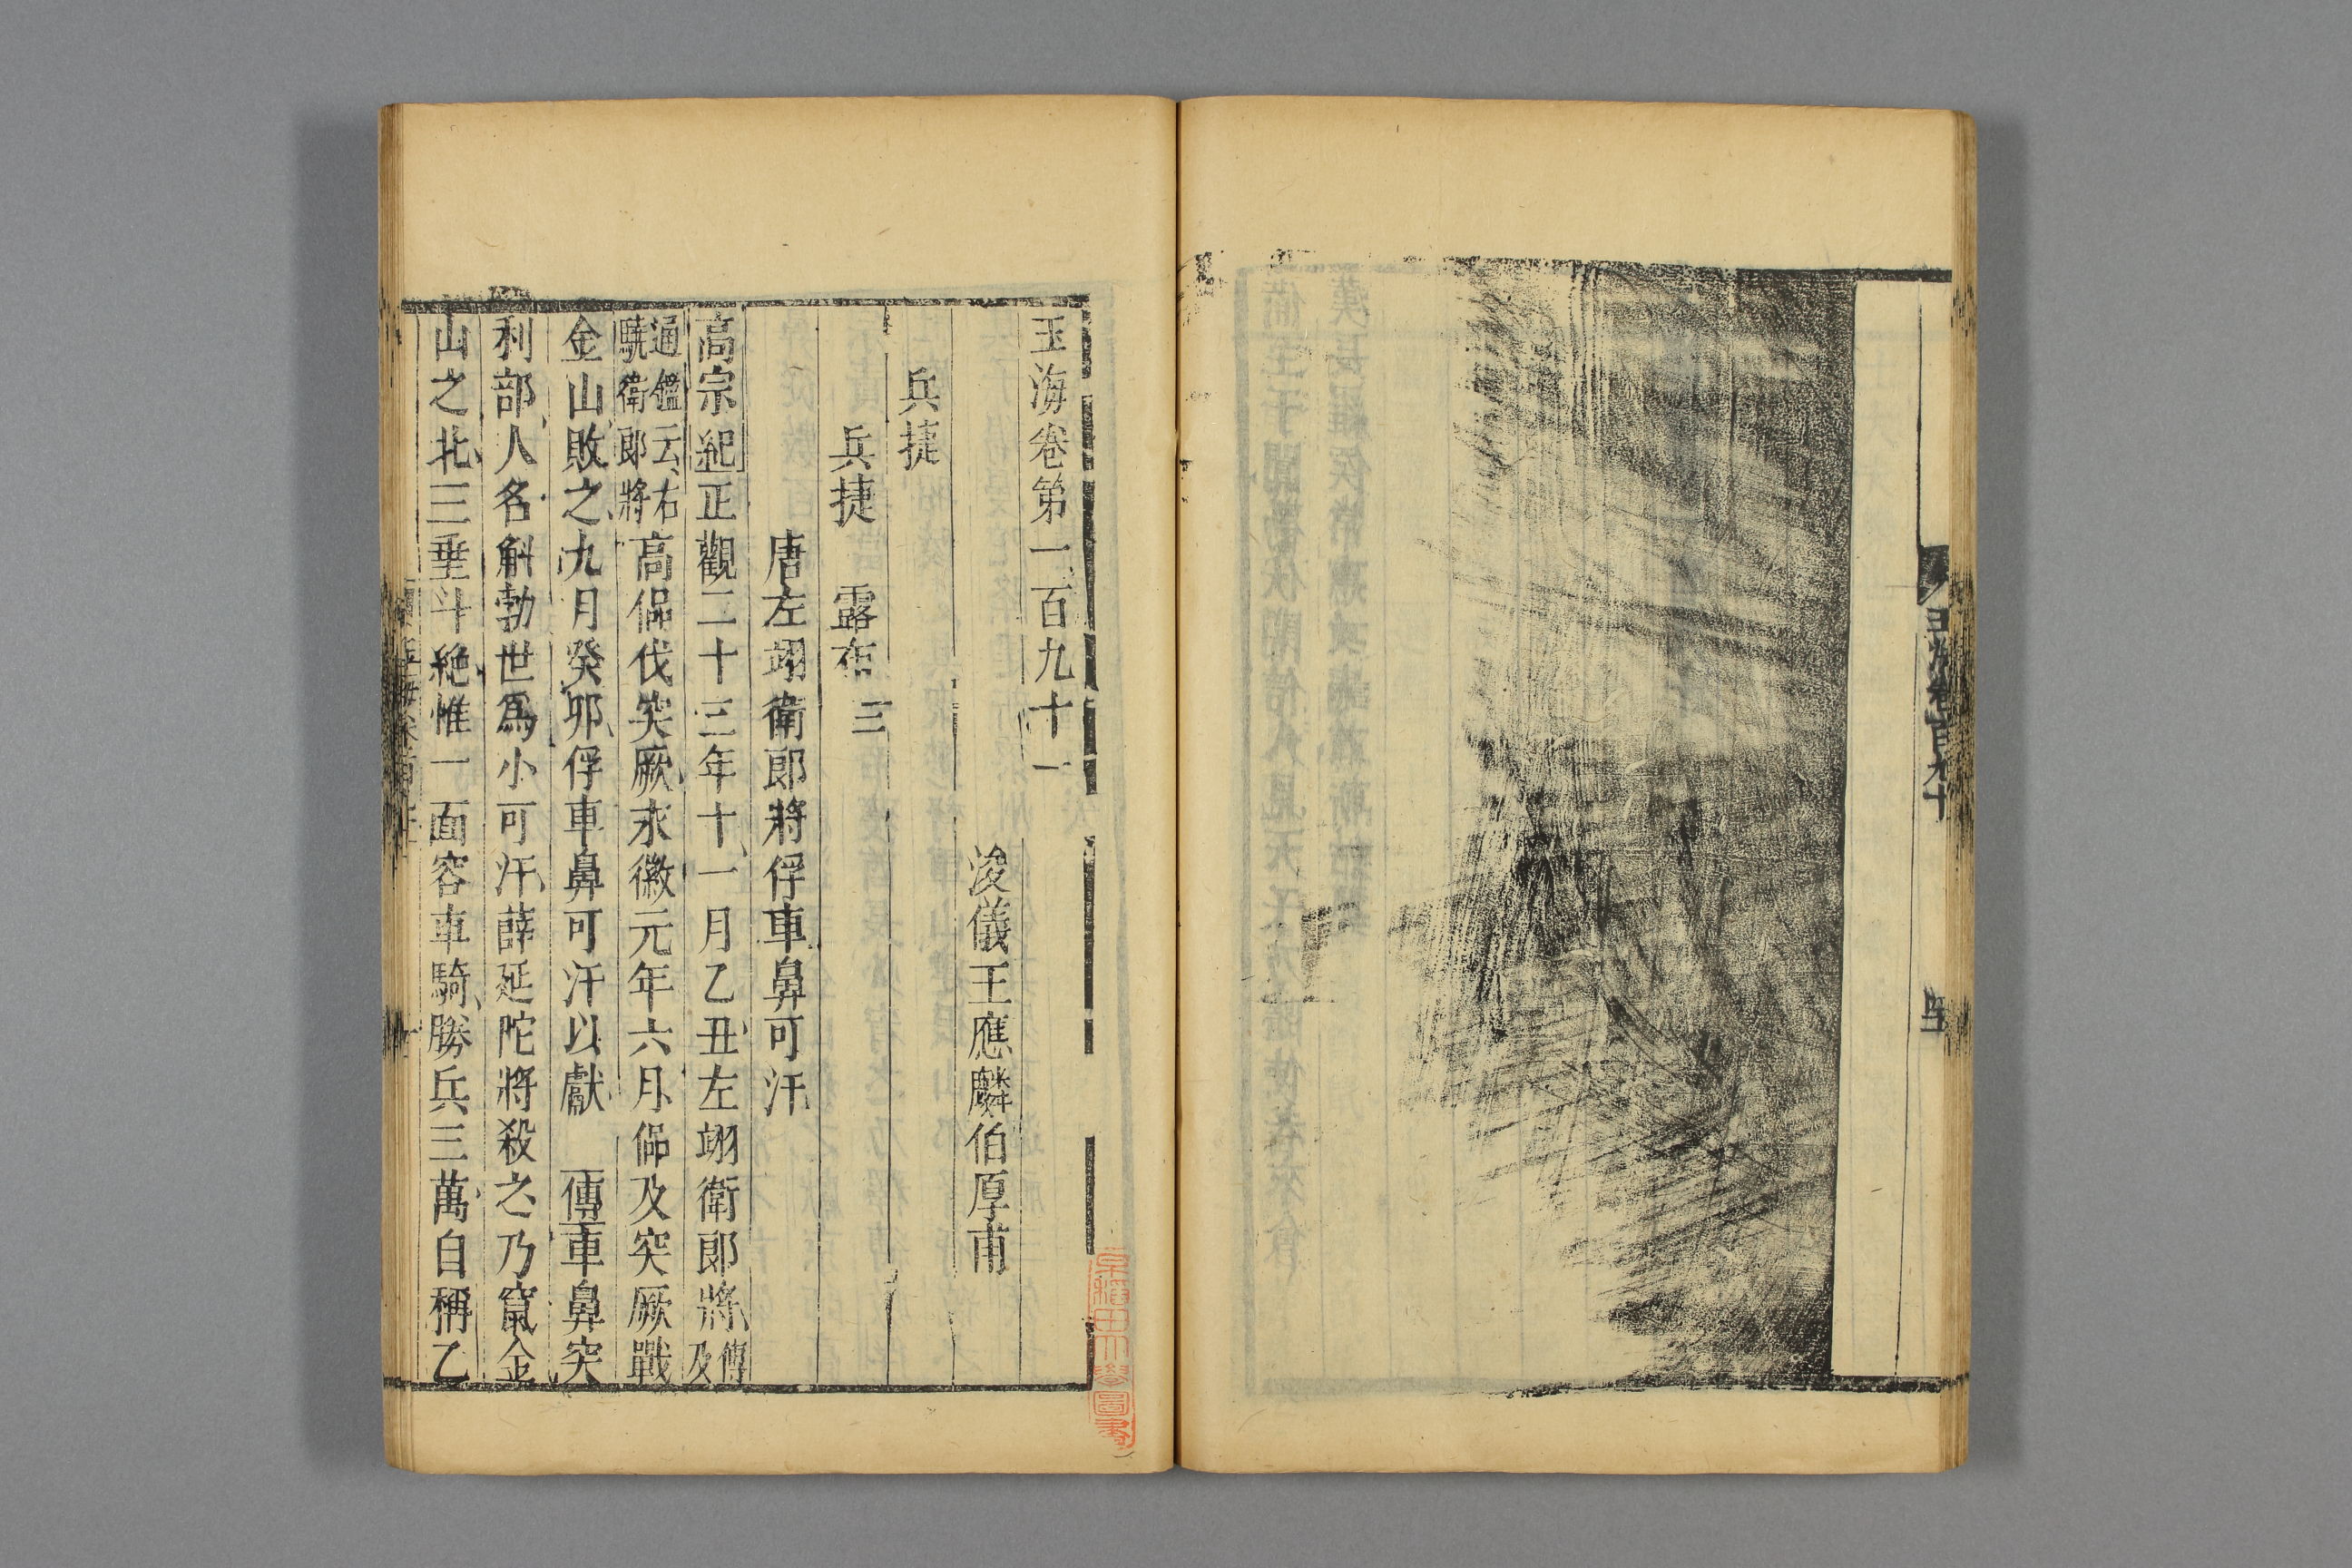 玉海卷百九十
玉海卷第一百九十一
浚儀王應麟伯厚甫
兵捷
兵捷 露布三
唐左翊衛郎將俘車鼻可汗
高宗紀正觀二十三年十一月乙丑左翊衛郎將傳及
通鑑云右驍衛郎將高偘伐突厥永徽元年六月偘及突厥戰
金山敗之九月癸卯俘車鼻可汗以獻 傳車鼻突
利部人名斛勃世爲小可汗薛延陀將殺之乃竄金
山之北三垂斗絶惟一面容車騎勝兵三萬自稱乙
早稻田大學圖書